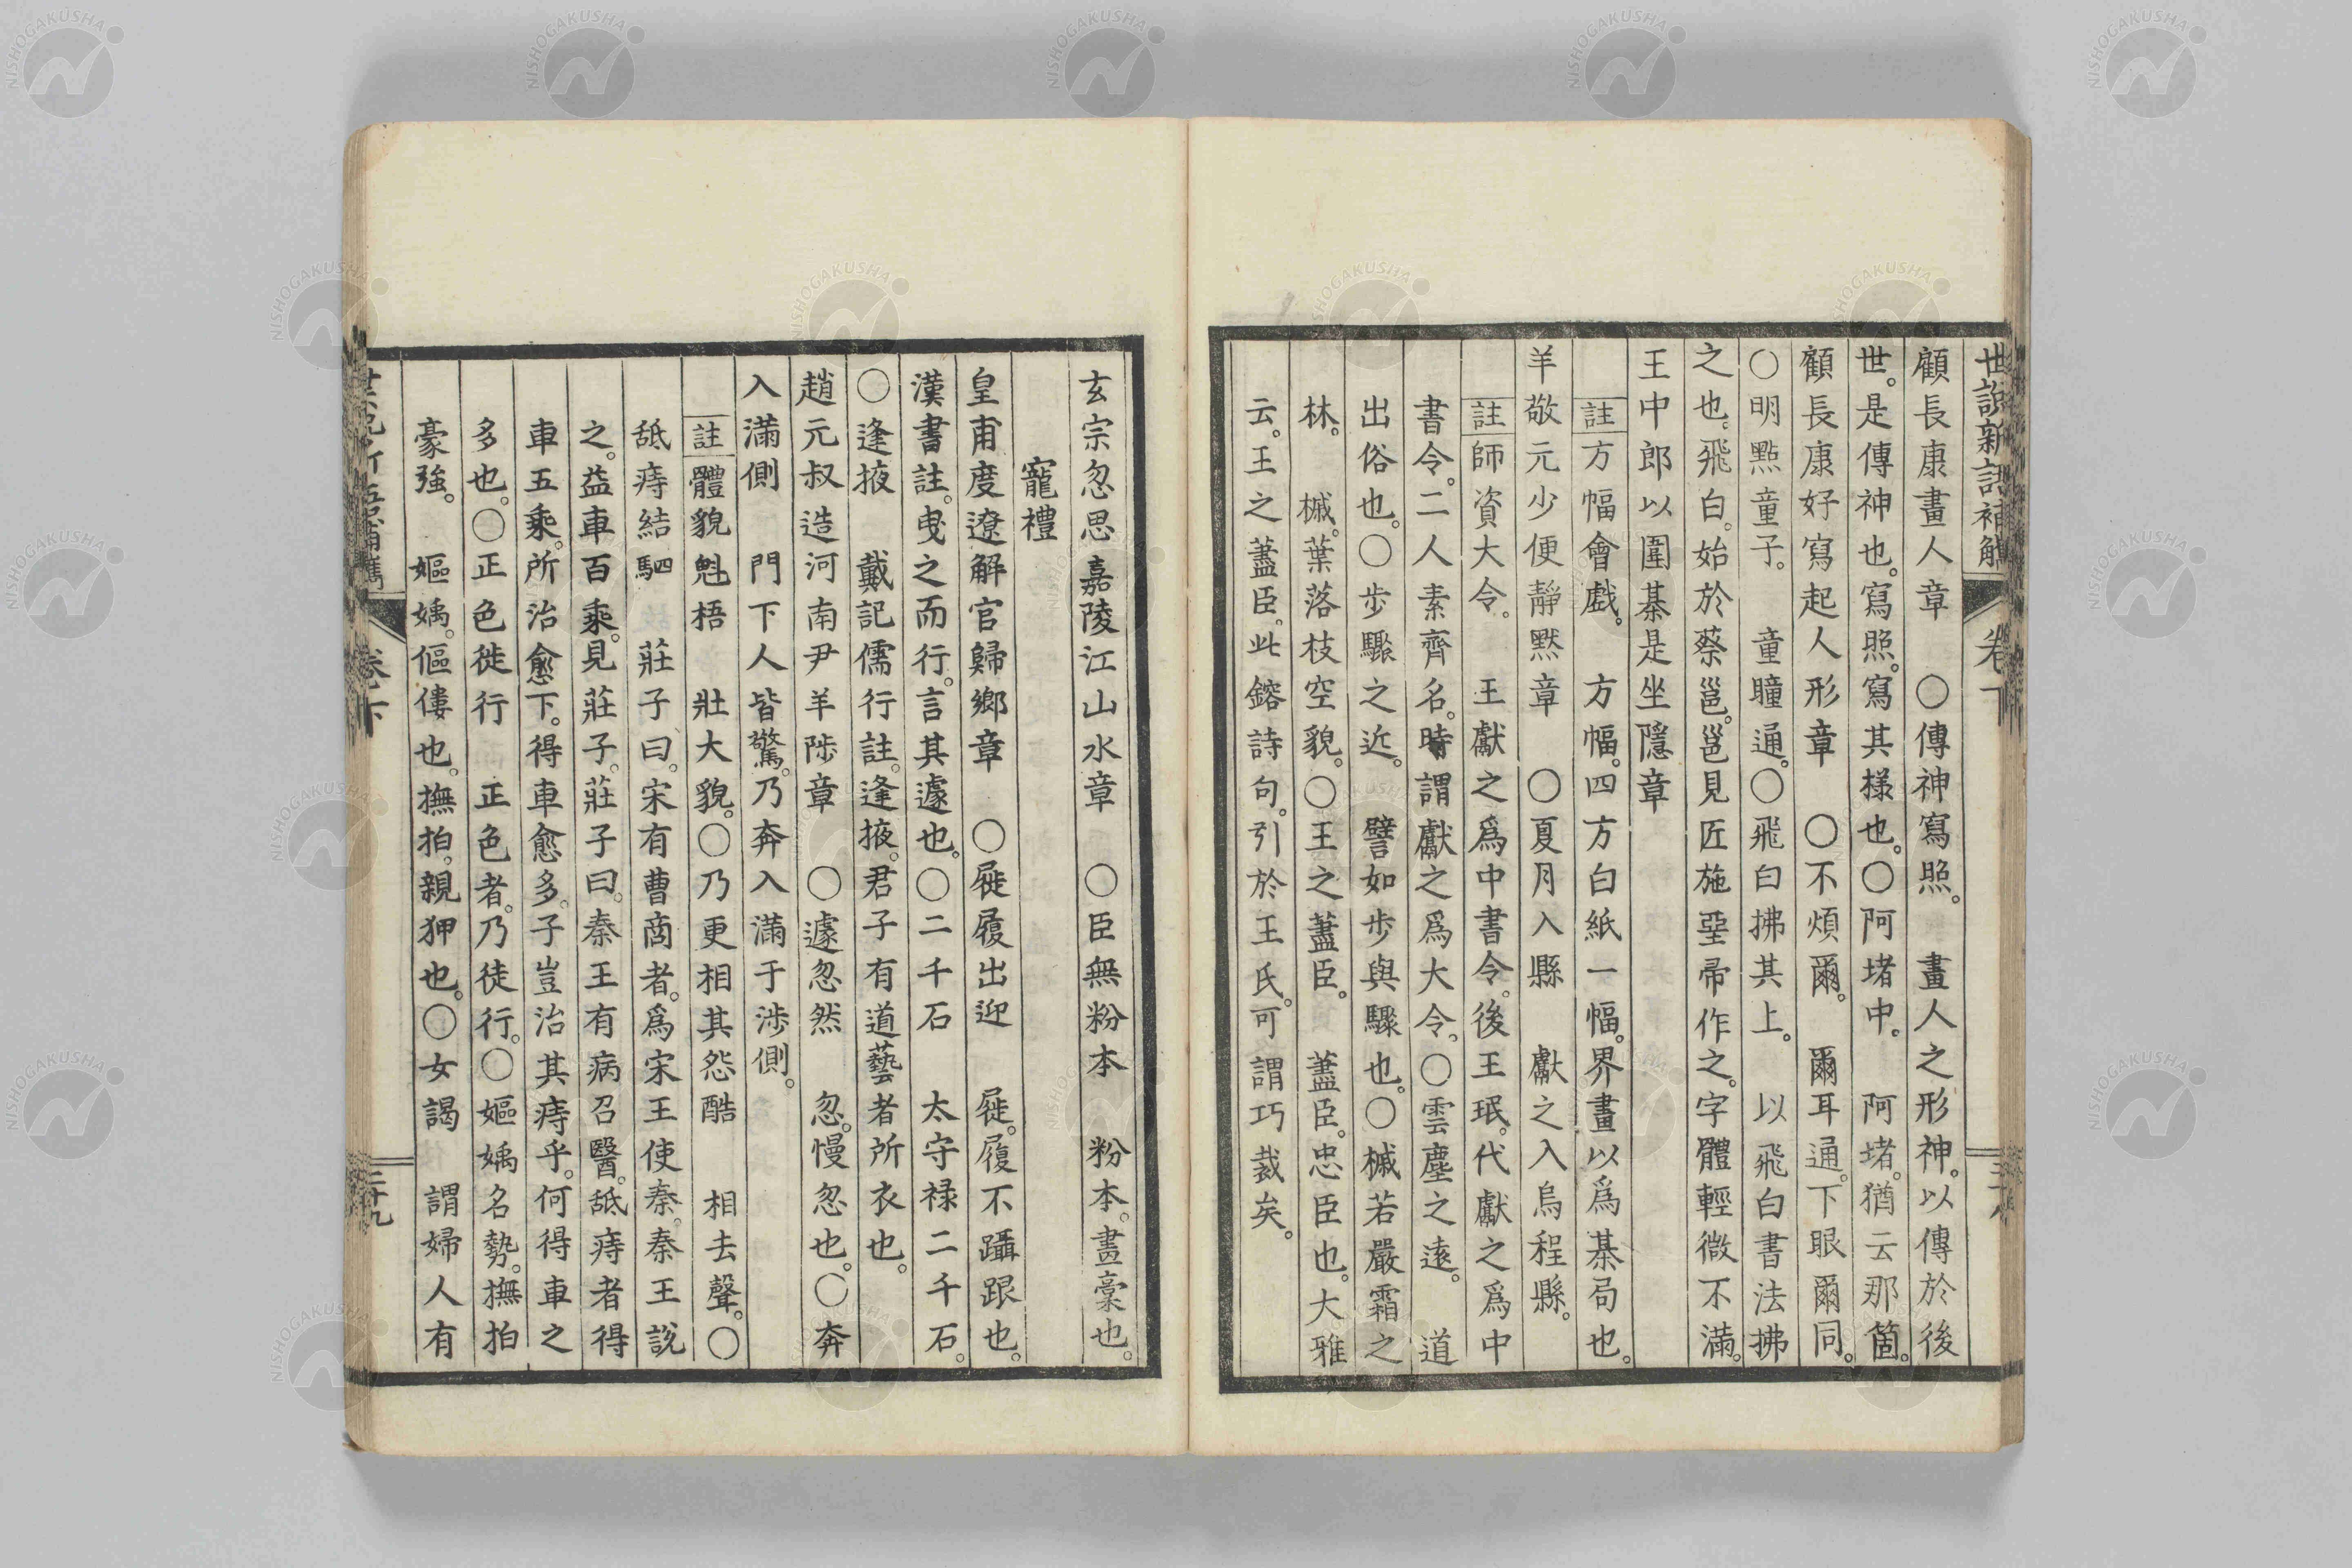 世説新語補觽 卷下
顧長康畫人章　〇傳神寫照。　畫人之形神。以傳於後
世。是傳神也。寫照。寫其樣也。〇阿堵中。　阿堵。猶云那箇。
顧長康好寫起人形章　〇不煩爾。　爾耳通。下眼爾同。
〇明點童子。　童瞳通。〇飛白拂其上。　以飛白書法拂
之也。飛白。始於蔡邕。邕見匠施堊帚作之。字體輕微不滿。
王中郎以圍棊是坐隱章
註方幅會戲。　方幅。四方白紙一幅。界畫以爲棊局也。
羊敬元少便靜默章　〇夏月入縣　獻之入烏程縣。
註師資大令。　王獻之爲中書令。後王珉。代獻之爲中
書令。二人素齊名。時謂獻之爲大令。〇雲塵之遠。　道
出俗也。〇步驟之近。　譬如步與驟也。〇槭若嚴霜之
林。　槭。葉落枝空貌。〇王之藎臣。　藎臣。忠臣也。大雅
云。王之藎臣。此鎔詩句。引於王氏。可謂巧裁矣。
玄宗忽思嘉陵江山水章　〇臣無粉本　粉本。畫稾也。
寵禮
皇甫度遼解官歸鄉章　〇屣履出迎　屣。履不躡跟也。
漢書註。曳之而行。言其遽也。〇二千石　太守祿二千石。
〇逢掖　戴記儒行註。逢掖。君子有道藝者所衣也。
趙元叔造河南尹羊陟章　〇遽忽然　忽。慢忽也。〇奔
入滿側　門下人皆驚。乃奔入滿于涉側。
註體貌魁梧　壯大貌。〇乃更相其怨酷　相去聲。〇
舐痔結駟　莊子曰。宋有曹商者。爲宋王使秦。秦王説
之。益車百乘。見莊子。莊子曰。秦王有病召醫。舐痔者得
車五乘。所治愈下。得車愈多。子豈治其痔乎。何得車之
多也。〇正色徙行　正色者。乃徒行。〇嫗媀名勢。撫拍
豪強。　嫗媀。傴僂也。撫拍。親狎也。〇女謁　謂婦人有